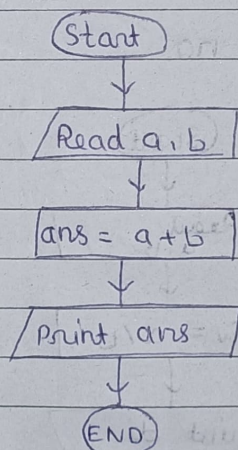 Start
Read a, b
ans = a + b
Print ans
END